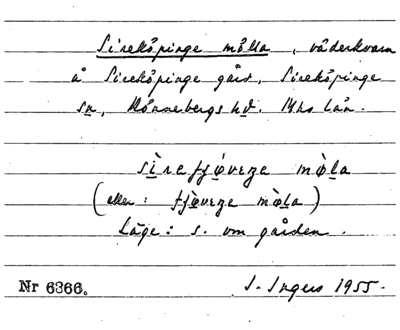 Sireköpinge mölla, väderkvarn
å Sireköpinge gård, Sireköpinge
sn, Rönnebergs hd. Mhs län.
sìrefjø̀vɛŋe mø̀la
(eller: fjø̀vɛŋe mø̀la)
Läge: s. om gården.
Nr 6366. I. Ingers 1955.